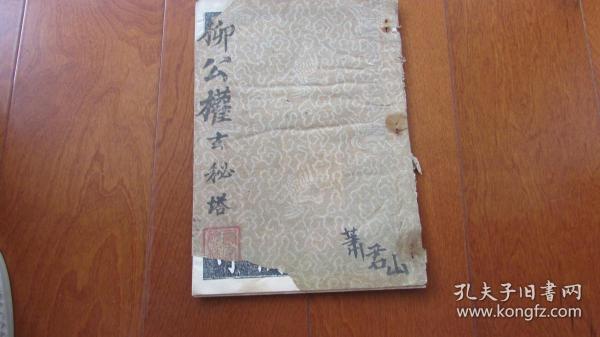 柳公權玄秘塔
蕭君山
孔夫子旧書网
www.kongfz.com